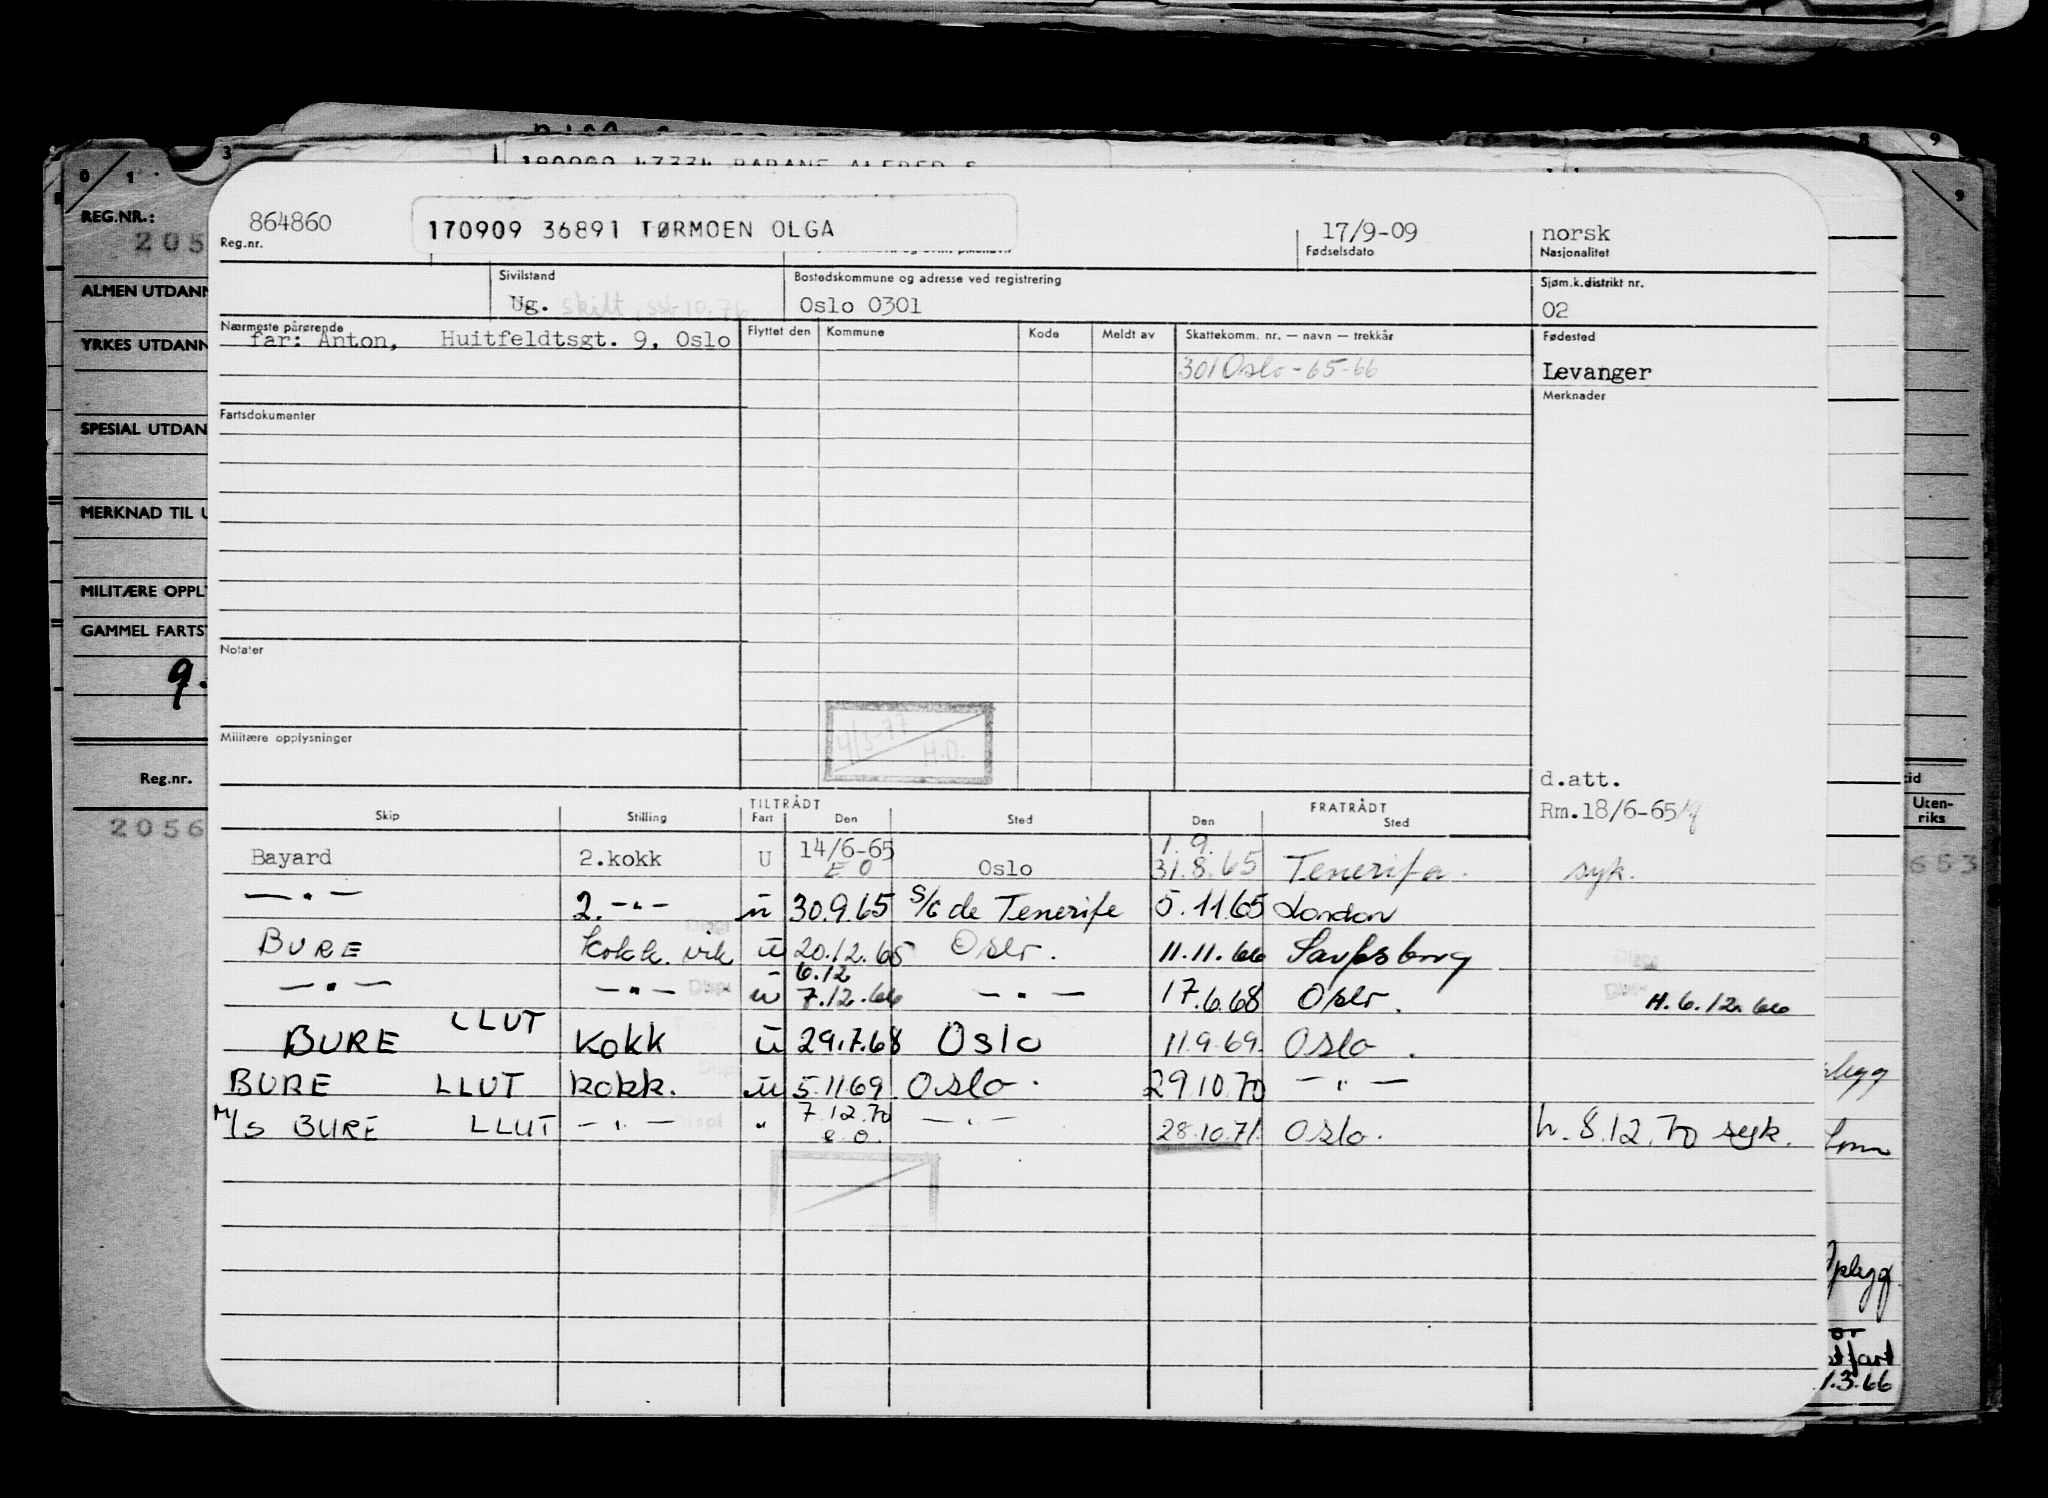 REG.NR.:
205
ALMEN UTDANN
YRKES UTDANN
SPESIAL UTDAN
MERKNAD TIL U
MILITÆRE OPPLY
GAMMEL FARTS
9.
Reg.nr.
2056
864860
Reg.nr.
170909 36891 TØRMOEN OLGA
17/9-09
Fødselsdato
norsk
Nasjonalitet
Sivilstand
Ug. skilt, sst 10.76
Bostedskommune og adresse ved registrering
Oslo 0301
Sjøm.k.distrikt nr.
02
Nærmeste pårørende
far: Anton, Huitfeldtsgt. 9, Oslo
Flyttet den Kommune Kode Meldt av Skattekomm. nr. — navn — trekkår
301 Oslo - 65-66
Fødested
Levanger
Merknader
Fartsdokumenter
Notater
Militære opplysninger
4/3-77
H.O.
d.att.
Rm.18/6-65
Skip Stilling TILTRÅDT Fart Den Sted FRATRÅDT Den Sted
Bayard 2.kokk U 14/6-65 E O Oslo 1.9. 31.8.65 Tenerifa. syk.
— " — 2. -"- u 30.9.65 S/C de Tenerife 5.11.65 London
BURE kokk. vik u 20.12.65 Oslo. 11.11.66 Sarpsborg
— " — — " — u 6.12 7.12.66 — " — 17.6.68 Oslo. H. 6.12.66
BURE LLUT kokk u 29.7.68 Oslo 11.9.69. Oslo.
BURE LLUT kokk. u 5.11.69 Oslo. 29.10.70 — " —
M/S BURE LLUT — " — " 7.12.70 e.o. — " — 28.10.71. Oslo. h. 8.12.70 syk.
Uten-
riks
653
1.3.66